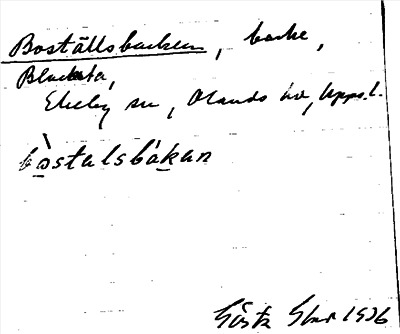 Boställsbacken, backe,
Blacksta,
Ekeby sn, Olands hd, Upps.l.
bòstalsbákan
Gösta 1936